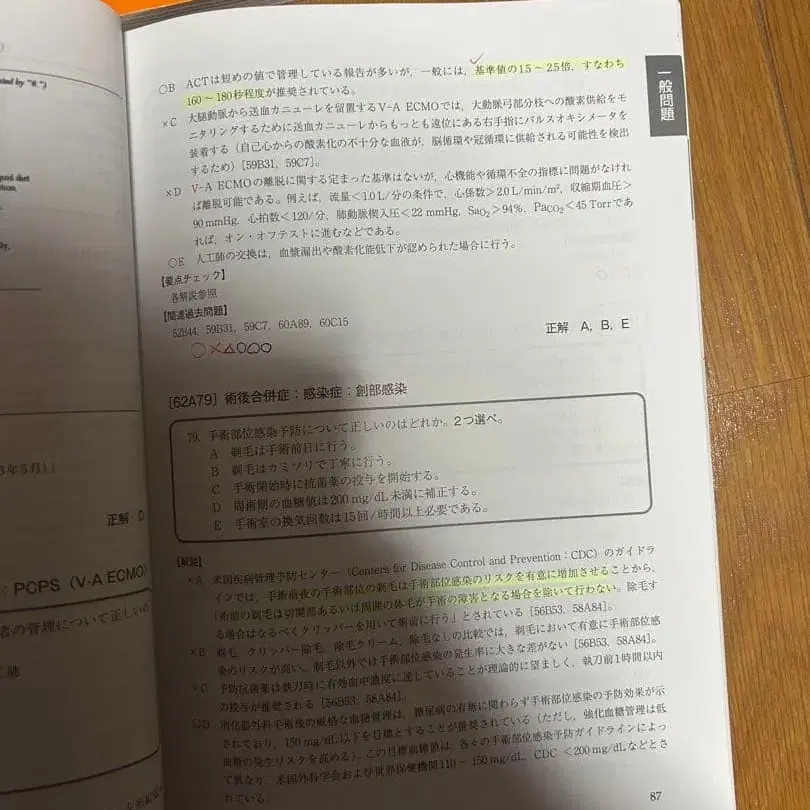 ○B ACTは短めの値で管理している報告が多いが，一般には，基準値の1.5～2.5倍，すなわち
160～180秒程度が推奨されている。
×C 大腿動脈から送血カニューレを留置するV-A ECMOでは，大動脈弓部分枝への酸素供給をモ
ニタリングするために送血カニューレからもっとも遠位にある右手指にパルスオキシメータを
装着する（自己心からの酸素化の不十分な血液が，脳循環や冠循環に供給される可能性を検出
するため）[59B31，59C7]。
×D V-A ECMOの離脱に関する定まった基準はないが，心機能や循環不全の指標に問題がなけれ
ば離脱可能である。例えば，流量＜1.0 L/分の条件で，心係数＞2.0 L/min/m²，収縮期血圧＞
90 mmHg，心拍数＜120/分，肺動脈楔入圧＜22 mmHg，SaO₂＞94%，PaCO₂＜45 Torrであ
れば，オン・オフテストに進むなどである。
○E 人工肺の交換は，血漿漏出や酸素化能低下が認められた場合に行う。
【要点チェック】
各解説参照
【関連過去問題】
52B44，59B31，59C7，60A89，60C15
正解 A，B，E
○×△○○○
一般問題
[62A79] 術後合併症：感染症：創部感染
79．手術部位感染予防について正しいのはどれか。2つ選べ。
A 剃毛は手術前日に行う。
B 剃毛はカミソリで丁寧に行う。
C 手術開始時に抗菌薬の投与を開始する。
D 周術期の血糖値は200 mg/dL未満に補正する。
E 手術室の換気回数は15回/時間以上必要である。
【解説】
×A 米国疾病管理予防センター（Centers for Disease Control and Prevention：CDC）のガイドラ
インでは，手術前夜の手術部位の剃毛は手術部位感染のリスクを有意に増加させることから，
「術前の剃毛は切開部あるいは周囲の体毛が手術の障害となる場合を除いて行わない。除毛す
る場合はなるべくクリッパーを用いて術前に行う」とされている [56B53，58A84]。
×B 剃毛，クリッパー除毛，除毛クリーム，除毛なしの比較では，剃毛において有意に手術部位感
染のリスクが高い。剃毛以外では手術部位感染の発生率に大きな差がない [56B53，58A84]。
×C 予防抗菌薬は執刀時に有効血中濃度に達していることが理論的に望ましく，執刀前1時間以内
の投与が推奨される [56B53，58A84]。
○D 消化器外科手術後の厳格な血糖管理は，糖尿病の有無に関わらず手術部位感染の予防効果が示
されており，150 mg/dL以下を目標とすることが推奨されている（ただし，強化血糖管理は低
血糖の発生リスクを高める）。この目標血糖値は，各々の手術部位感染予防ガイドラインによっ
て異なり，米国外科学会および世界保健機関110～150 mg/dL，CDC＜200 mg/dLなどとさ
れている。
87
正解 D
：PCPS（V-A ECMO）
者の管理について正しいの